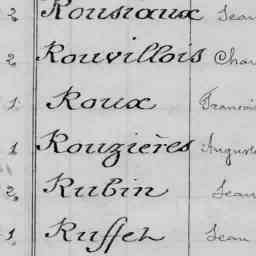 2 Rousiaux Jean
2 Rouvillois Char
1 Roux François
1 Rouzières Auguste
2 Rubin Jean
1 Ruffet Jean